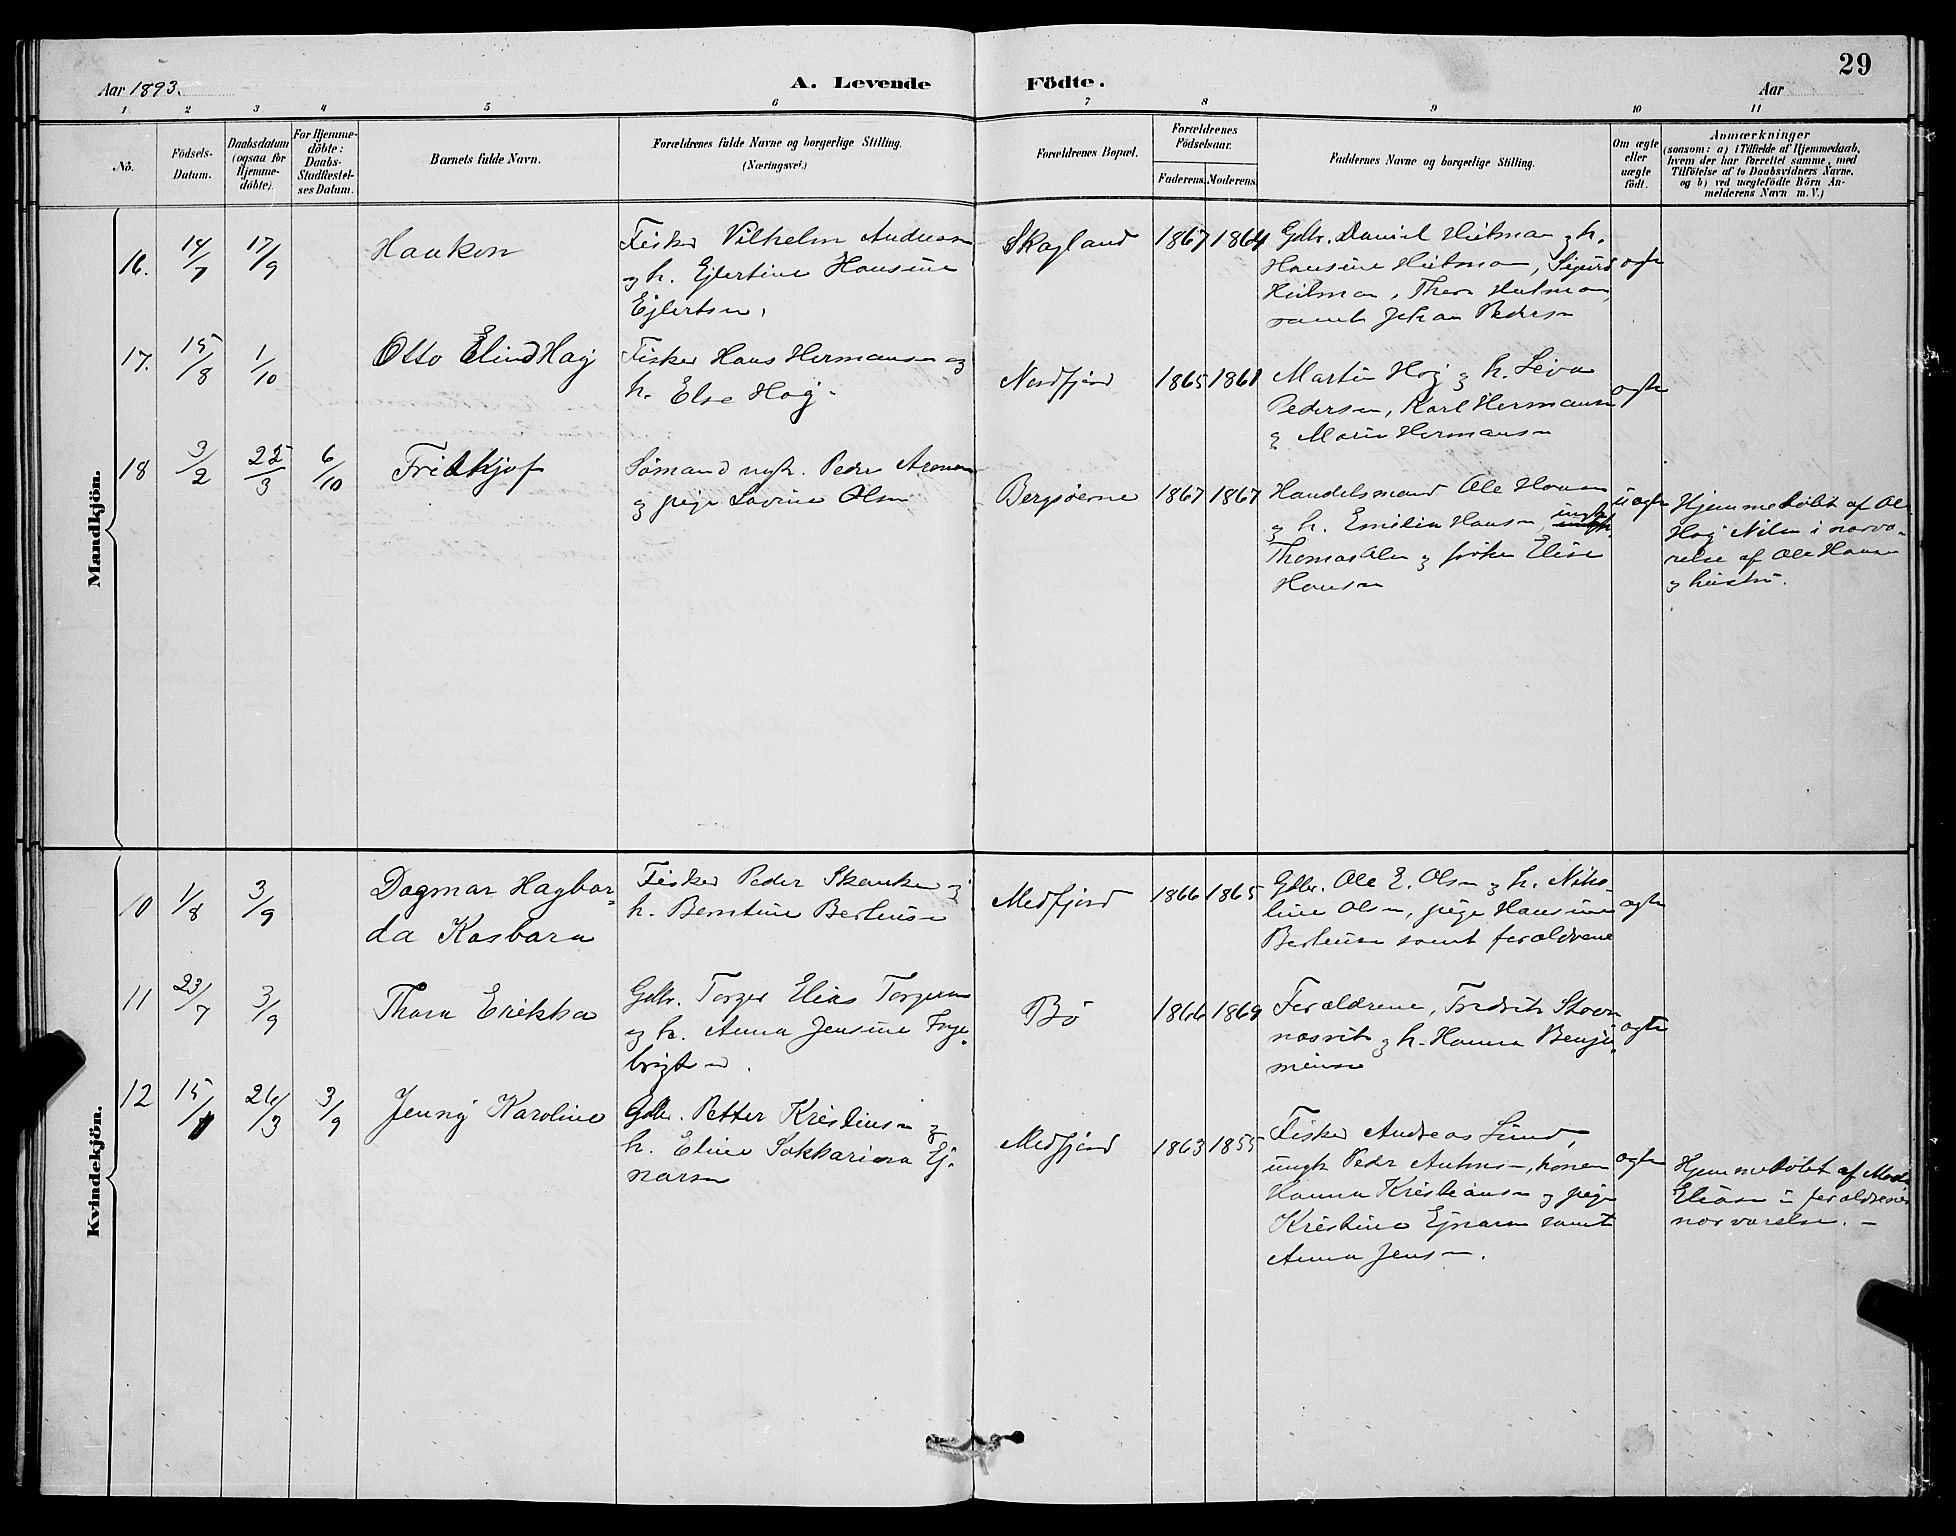 29
Aar 1893.
A. Levende Födte.
Aar
1 2 3 4 5 6 7 8 9 10 11
No.
Födsels-Datum.
Daabsdatum (ogsaa for Hjemme-döbte).
For Hjemme-döbte: Daabs-Stadfæstel-ses Datum.
Barnets fulde Navn.
Forældrenes fulde Navne og borgerlige Stilling.
(Næringsvei.)
Forældrenes Bopæl.
Forældrenes Födselsaar.
Faderens. Moderens.
Faddernes Navne og borgerlige Stilling.
Om ægte eller uægte födt.
Anmærkninger
(saasom: a) i Tilfælde af Hjemmedaab,
hvem der har forrettet samme, med
Tilföielse af to Daabsvidners Navne,
og b) ved uægtefödte Börn An-
melderens Navn m. V.)
Mandkjön.
16. 14/7 17/9 Haakon
Fisker Vilhelm Andreasen
og h. Ejlertine Hansine
Ejlertsen.
Skagland 1867 1864
Gdbr. Daniel Heitman og h.
Hansine Heitman, Sigurd
Heitman, Thora Heitman,
samt Johan Pedersen
ægte
17. 15/8 1/10 Otto Elind Høg
Fisker Hans Hermansen og
h. Else Høg.
Nordfjord 1865 1861
Martin Høg og h. Leva
Pedersen, Karl Hermansen
og Marie Hermansen
ægte
18 3/2 25/3 6/10 Fridtkjof
Sømand ungk. Peder Aronsen
og pige Lovine Olsen
Bergsøerne 1867 1867
Handelsmand Ole Hansen
og h. Emilie Hansen, ungk.
Thomas Olsen og frøken Elise
Hansen
uægte
Hjemmedøbt af Ole
Høg Nilsen i nærvæ-
relse af Ole Hansen
og hustru.
Kvindekjön.
10 1/8 3/9 Dagmar Hagbar-
da Kasbara
Fisker Peder Skanke og
h. Berntine Berteusen
Medfjord 1866 1865
Gdbr. Ole E. Olsen og h. Niko-
line Olsen, pige Hansine
Berteusen samt forældrene
ægte
11 23/7 3/9 Thora Erikka
Gdbr. Torger Elias Torgersen
og h. Anna Jensine Inge-
brigtsen.
Bø 1866 1869
Forældrene, Fredrik
og h. Hanna Benja-
minsen
ægte
12 15/1 26/3 3/9 Jenny Karoline
Gdbr. Petter Kristiansen og
h. Eline Sakkarina Ej-
narsen
Medfjord 1863 1855
Fisker Andreas Lund,
ungk Peder, konen
Hanna Kristiansen og pige
Kristine Ejnarsen samt
Anna Jensen.
ægte
Hjemmedøbt af
Eliasen i forældrenes
nærværelse. -